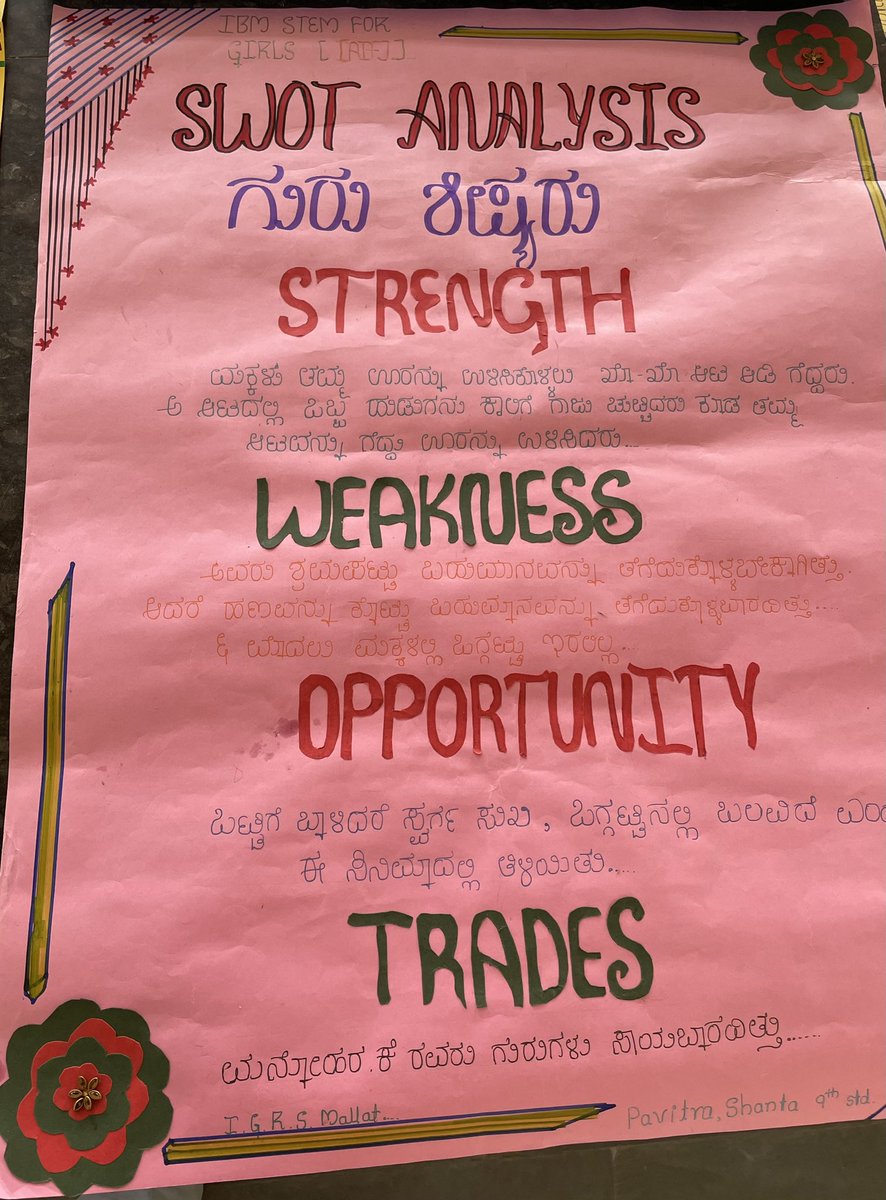 IBM STEM FOR
GIRLS [ [AIF] ]
SWOT ANALYSIS
ಗುರು ಶಿಷ್ಯರು
STRENGTH
ಮಕ್ಕಳು ತಮ್ಮ ಊರನ್ನು ಉಳಿಸಿಕೊಳ್ಳಲು ಖೋ-ಖೋ ಆಟ ಆಡಿ ಗೆದ್ದರು.
ಆ ಆಟದಲ್ಲಿ ಒಬ್ಬ ಹುಡುಗನು ಕಾಲಿಗೆ ಗಾಜು ಚುಚ್ಚಿದರು ಕೂಡ ತಮ್ಮ
ಆಟವನ್ನು ಗೆದ್ದು ಊರನ್ನು ಉಳಿಸಿದರು...
WEAKNESS
ಅವರು ಶ್ರಮಪಟ್ಟು ಬಹುಮಾನವನ್ನು ತೆಗೆದುಕೊಳ್ಳಬೇಕಾಗಿತ್ತು.
ಆದರೆ ಹಣವನ್ನು ಕೊಟ್ಟು ಬಹುಮಾನವನ್ನು ತೆಗೆದುಕೊಳ್ಳಬಾರದಿತ್ತು.....
& ಮೊದಲು ಮಕ್ಕಳಲ್ಲಿ ಒಗ್ಗಟ್ಟು ಇರಲಿಲ್ಲ...
OPPORTUNITY
ಒಟ್ಟಿಗೆ ಬಾಳಿದರೆ ಸ್ವರ್ಗ ಸುಖ, ಒಗ್ಗಟ್ಟಿನಲ್ಲಿ ಬಲವಿದೆ
ಈ ಸಿನಿಮಾದಲ್ಲಿ ತಿಳಿಯಿತು.....
TRADES
ಮನೋಹರ.ಕೆ ರವರು ಗುರುಗಳು ಸಾಯಬಾರದಿತ್ತು......
I.G.R.S. Mallat....
Pavitra, Shanta 9th std.